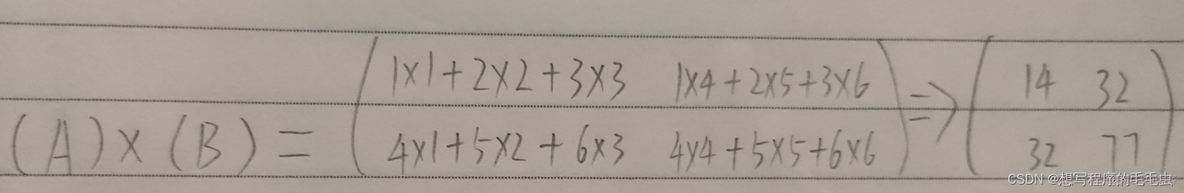 (A)×(B) = ( 1×1+2×2+3×3 1×4+2×5+3×6 ) => ( 14 32 )
4×1+5×2+6×3 4×4+5×5+6×6 32 77
CSDN @想写程序的毛毛虫